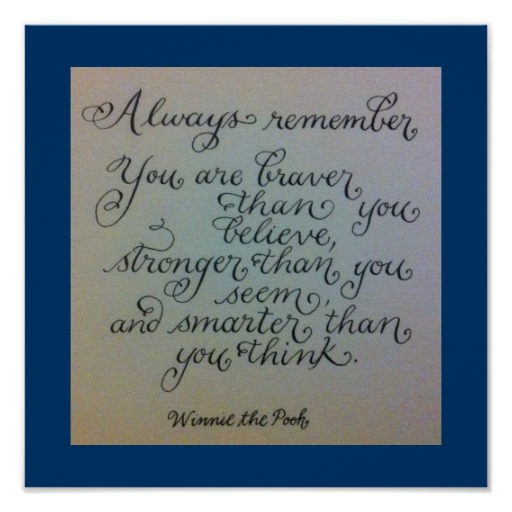 Always remember
You are braver
than you
believe,
stronger than you
seem,
and smarter than
you think.
Winnie the Pooh